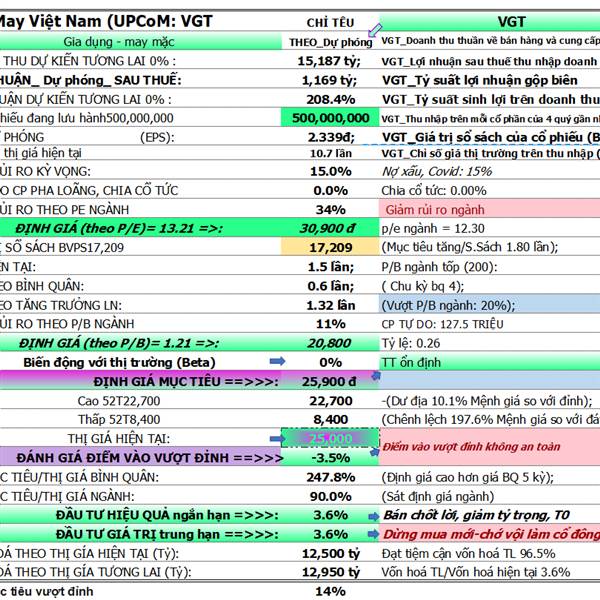 May Việt Nam (UPCoM: VGT CHỈ TÊU VGT
Gia dụng - may mặc THEO_Dự phóng VGT_Doanh thu thuần về bán hàng và cung cấp
THU DỰ KIẾN TƯƠNG LAI 0% : 15,187 tỷ; VGT_Lợi nhuận sau thuế thu nhập doanh
HUẬN_ Dự phóng_ SAU THUẾ: 1,169 tỷ; VGT_Tỷ suất lợi nhuận gộp biên
UẬN DỰ KIẾN TƯƠNG LAI 0% : 208.4% VGT_Tỷ suất sinh lợi trên doanh thu
hiếu đang lưu hành500,000,000 500,000,000 VGT_Thu nhập trên mỗi cổ phần của 4 quý gần n
PHÓNG (EPS): 2.339đ; VGT_Giá trị sổ sách của cổ phiếu (B
thị giá hiện tại 10.7 lần VGT_Chỉ số giá thị trường trên thu nhập (
ỦI RO KỲ VỌNG: 15.0% Nợ xấu, Covid: 15%
O CP PHA LOÃNG, CHIA CỔ TỨC 0.0% Chia cổ tức: 0.00%
ỦI RO THEO PE NGÀNH 34% Giảm rủi ro ngành
ĐỊNH GIÁ (theo P/E)= 13.21 =>: 30,900 đ p/e ngành = 12.30
Ị SỔ SÁCH BVPS17,209 17,209 (Mục tiêu tăng/S.Sách 1.80 lần);
ỆN TẠI: 1.5 lần; P/B ngành tốp (200):
EO BÌNH QUÂN: 0.6 lần; ( Chu kỳ bq 4);
EO TĂNG TRƯỞNG LN: 1.32 lần (Vượt P/B ngành: 20%);
ỦI RO THEO P/B NGÀNH 11% CP TỰ DO: 127.5 TRIỆU
ĐỊNH GIÁ (theo P/B)= 1.21 =>: 20,800 Tỷ lệ: 0.26
Biến động với thị trường (Beta) 0% TT ổn định
ĐỊNH GIÁ MỤC TIÊU ==>>>: 25,900 đ
Cao 52T22,700 22,700 -(Dư địa 10.1% Mệnh giá so với đỉnh);
Thấp 52T8,400 8,400 (Chênh lệch 197.6% Mệnh giá so với đá
THỊ GIÁ HIỆN TẠI: 25,000 Điểm vào vượt đỉnh không an toàn
ĐÁNH GIÁ ĐIỂM VÀO VƯỢT ĐỈNH ==>>> -3.5%
C TIÊU/THỊ GIÁ BÌNH QUÂN: 247.8% (Định giá cao hơn giá BQ 5 kỳ);
C TIÊU/THỊ GIÁ NGÀNH: 90.0% (Sát định giá ngành)
ĐẦU TƯ HIỆU QUẢ ngắn hạn ==>>>: 3.6% Bán chốt lời, giảm tỷ trọng, T0
ĐẦU TƯ GIÁ TRỊ trung hạn ==>>>: 3.6% Dừng mua mới-chớ vội làm cổ đông
OÁ THEO THỊ GÍA HIỆN TẠI (Tỷ): 12,500 tỷ Đạt tiệm cận vốn hoá TL 96.5%
OÁ THEO THỊ GIÁ TƯƠNG LAI (Tỷ): 12,950 tỷ Vốn hoá TL/Vốn hoá hiện tại 3.6%
c tiêu vượt đỉnh 14%